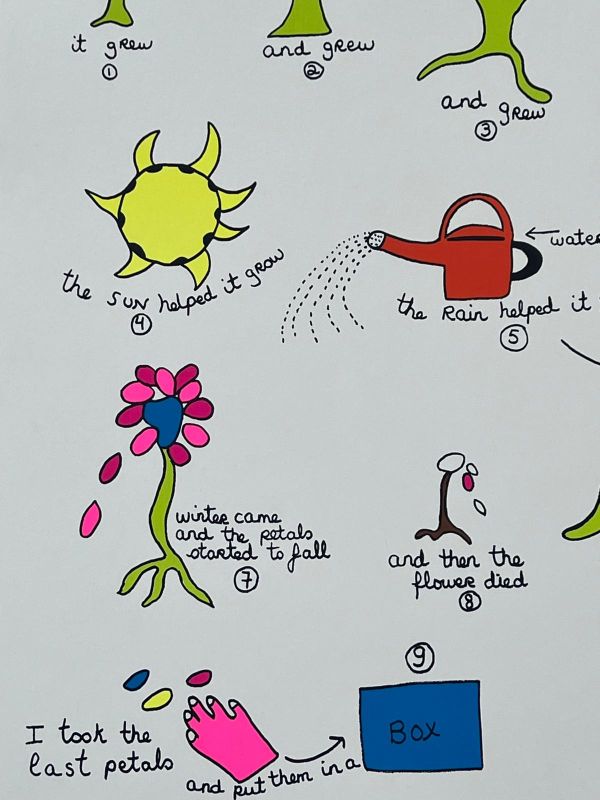 it grew
①
and grew
②
and grew
③
the SUN helped it grow
④
← wate
the Rain helped it
⑤
winter came
and the petals
started to fall
⑦
and then the
flower died
⑧
⑨
I took the
last petals
and put them in a
Box